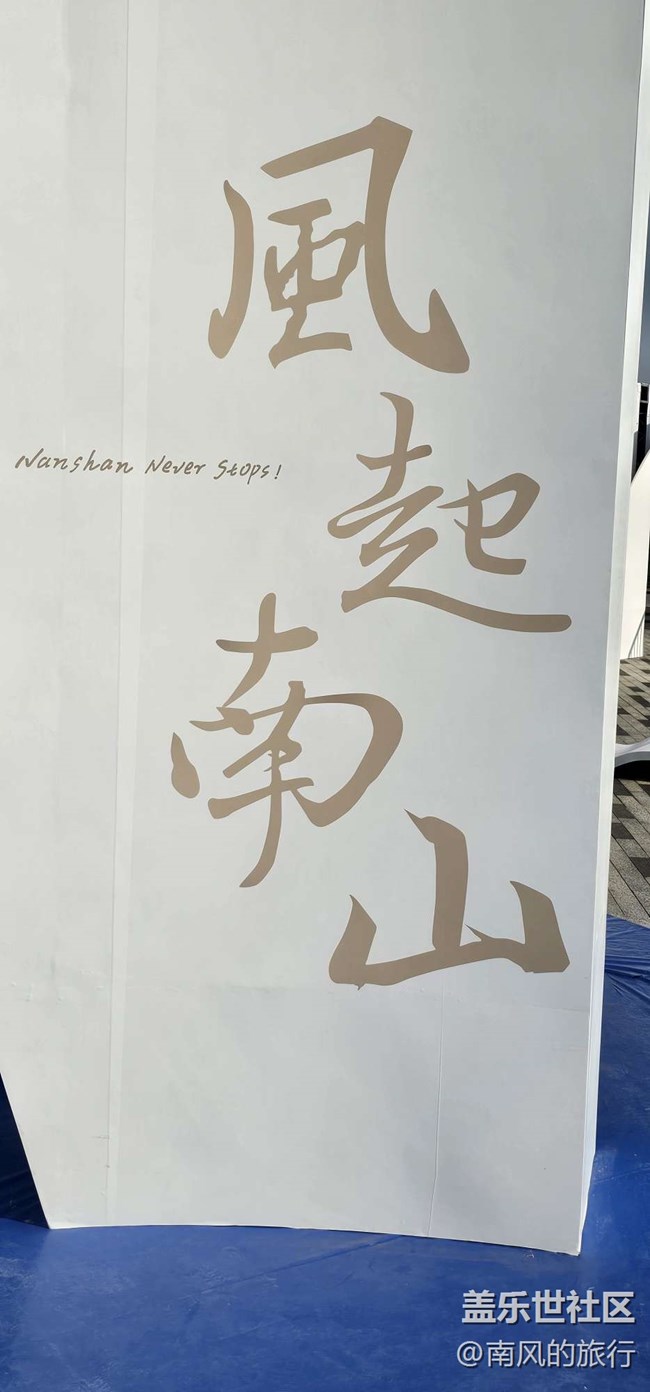 風
起
Nanshan Never Stops!
南
山
盖乐世社区
@南风的旅行